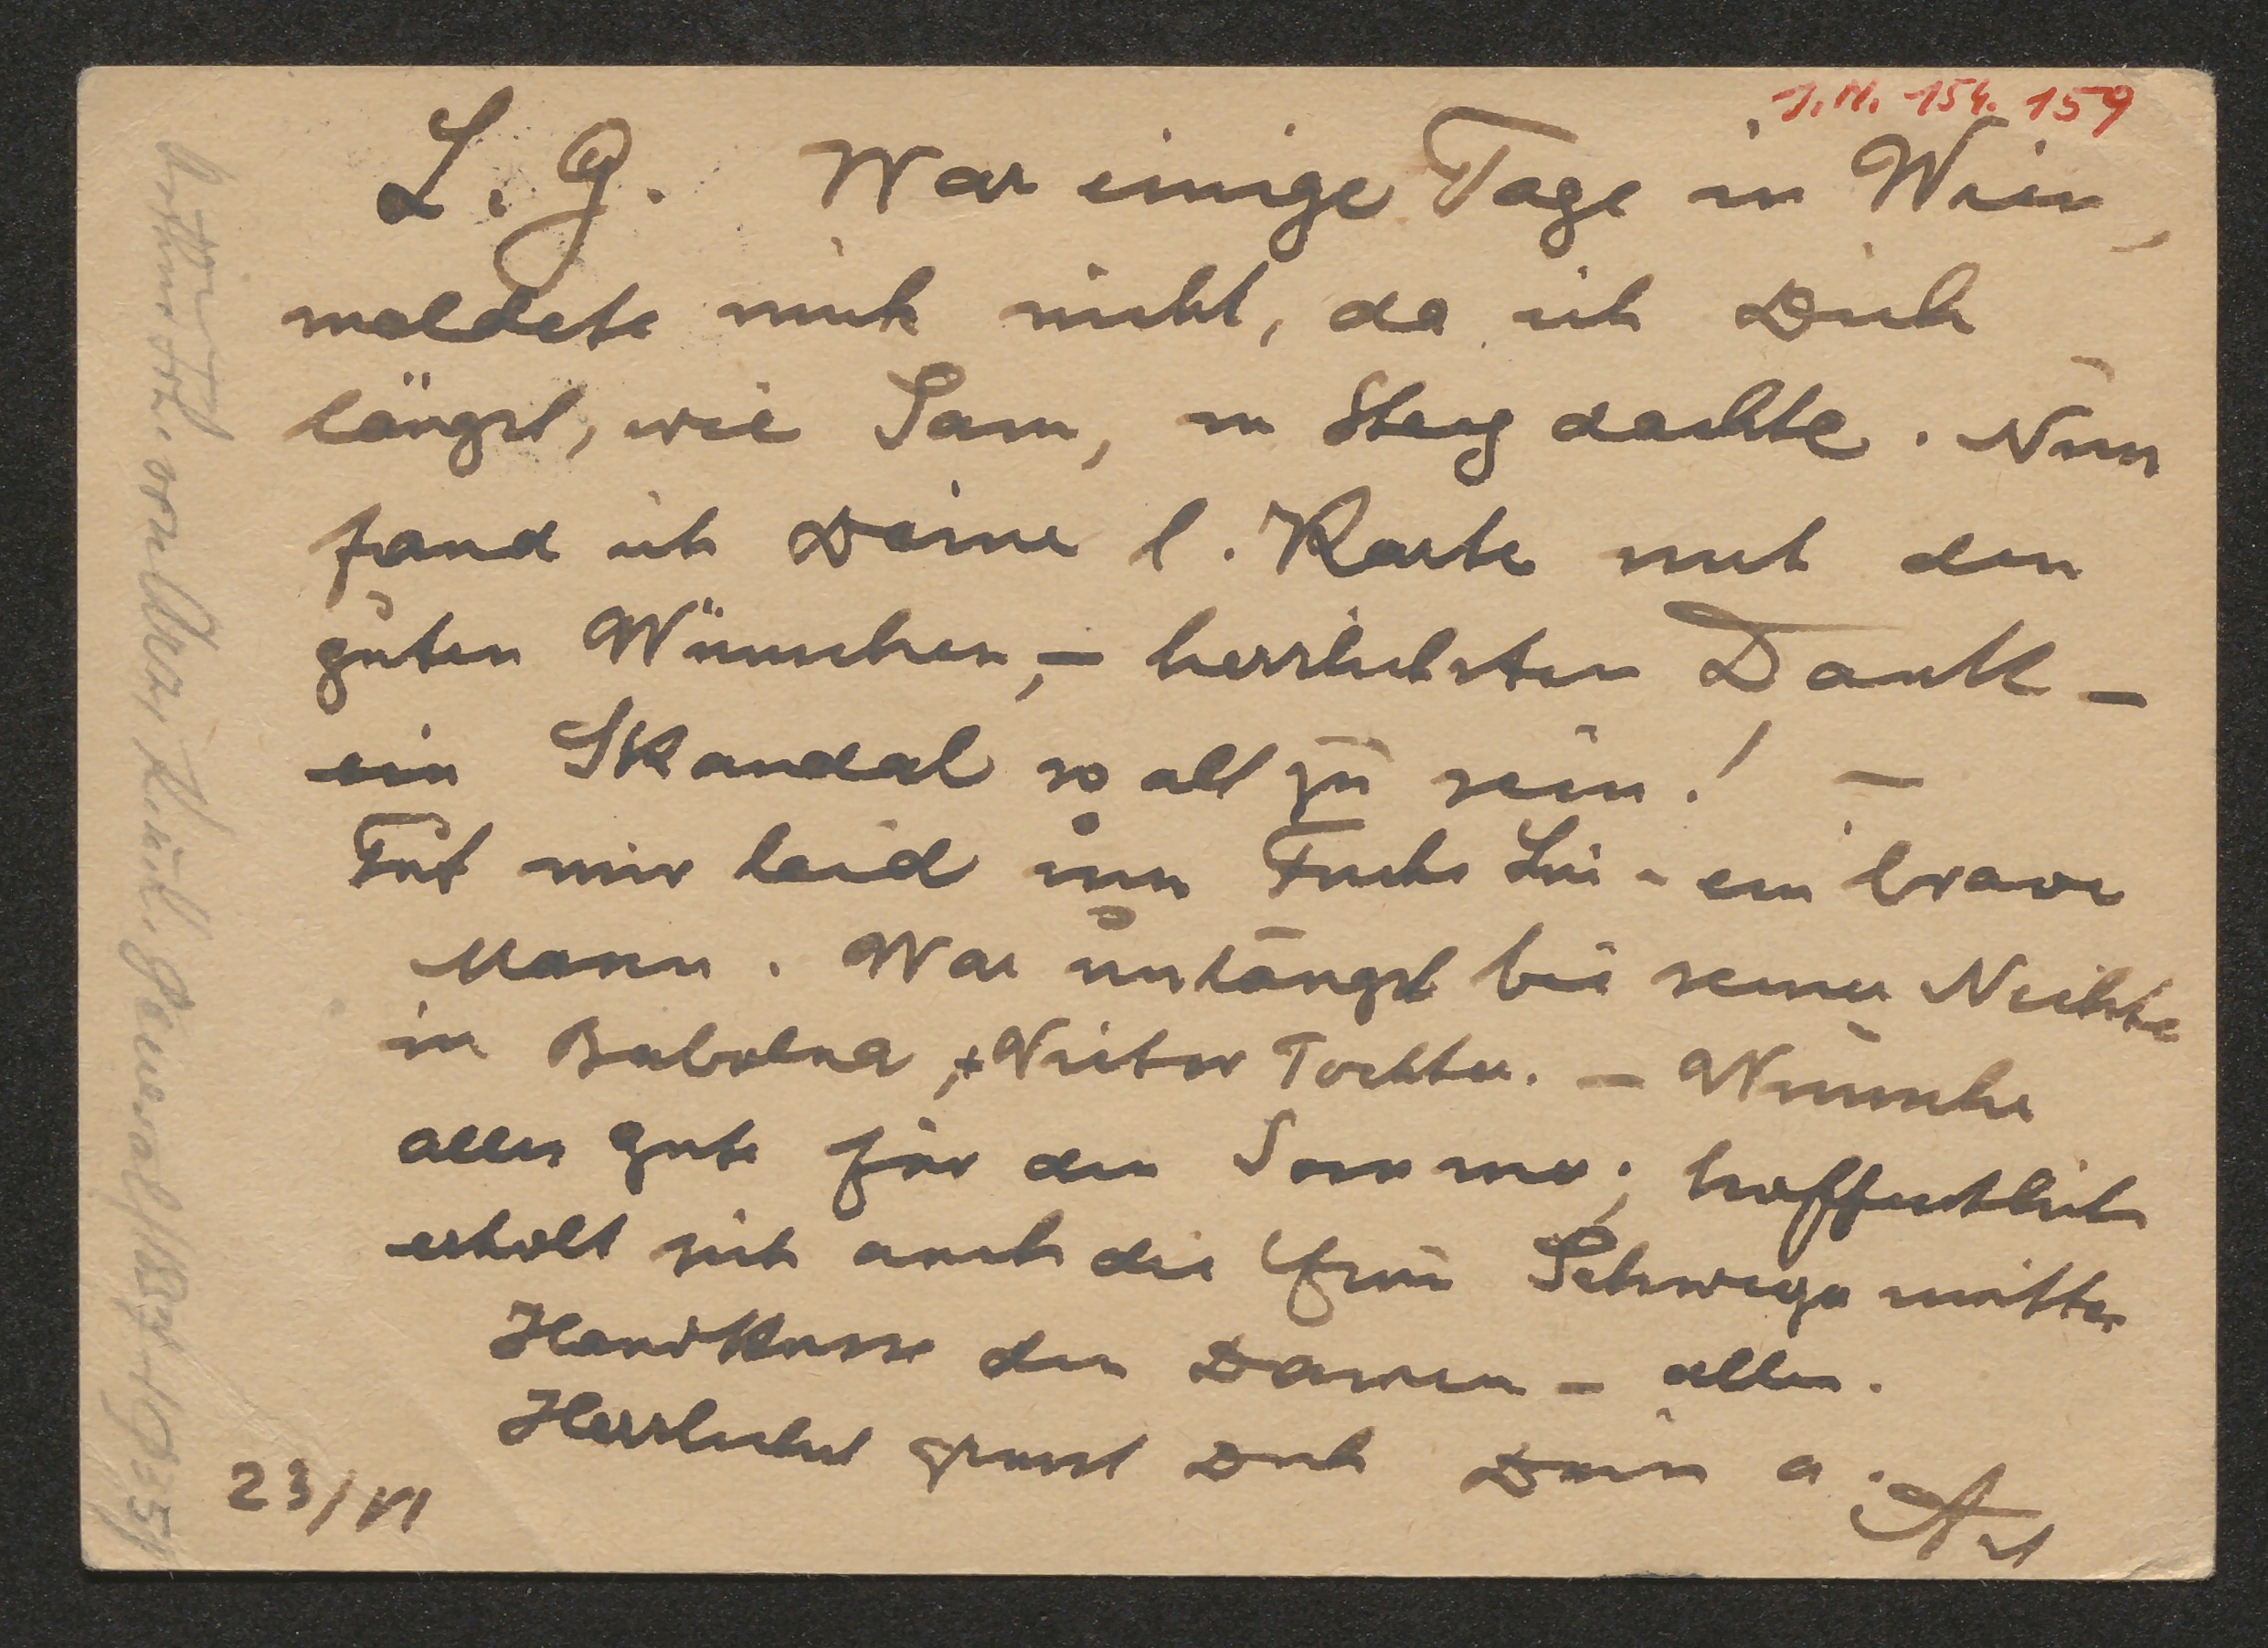 J.N. 154.159
L. G. War einige Tage in Wien,
meldete mich nicht, da ich Dich
längst, wie Sam, in Steg dachte. Nun
fand ich Deine l. Karte mit den
guten Wünschen, – herrlichsten Dank –
ein Skandal so alt zu sein! –
Tut mir leid um Fuchs – ein braver
Mann. War unlängst bei seiner Nichte
in Babolna, Tochter. – Wünsche
alles gute für den Sommer; hoffentlich
erholt sich auch die Frau Schwiegermutter
Handküsse den Damen – allen.
Herrlichst grüsst Dich Dein a.
23/VI
Arthur von General 1935